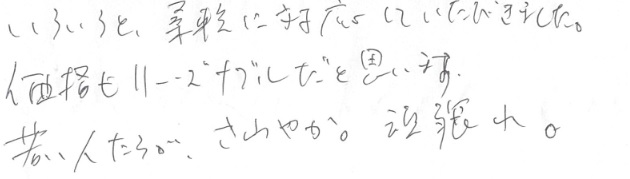 いろいろと、柔軟に対応していただきました。
価格もリーズナブルだと思います。
若い人たちが、さわやか。頑張れ。